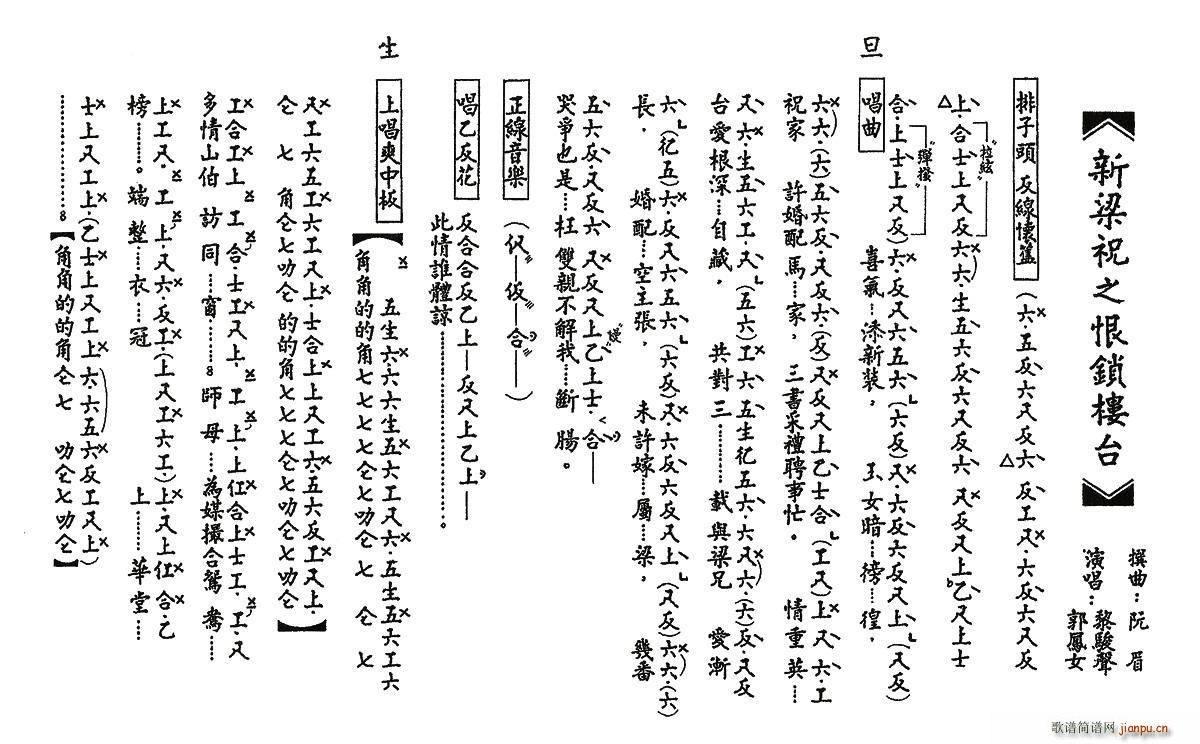 新梁祝之恨鎖樓台
撰曲：阮眉
演唱：黎駿聲
郭鳳女
排子頭 反線懷舊
（六·五反六又反六 反工又·六反六又反
上·合士上又反六六·生五六反六又反六 又反又上乙又上士
"拉絃"
旦
合·上士上又反）六·反又六五六（六反）又·六反六反又上（又反）
"彈撥"
唱曲
喜氣…添新裝， 玉女暗…徬…徨，
六六（六）五六反·又反六（反）又反又上乙士合（工又）上又六·工
祝家 許婚配馬…家， 三書采禮聘事忙。 情重英…
又·六·生五六工·又（五六）工·六五生伬五六·六又六·（六）反·又反
台愛根深…自藏， 共對三…… 載與梁兄 愛漸
六（伬五）六·反又六五六（六反）又·六反六反又上（又反）六六·（六）
長， 婚配…空主張， 未許嫁…屬…梁， 幾番
五六反又反六 又反又上乙上士·合——
哭爭也是…枉 雙親不解我……斷腸。
正線音樂
（仅—仮—合——）
唱乙反花
反合合反乙上—反又上乙上——
此情誰體諒…………………。
生
上唱爽中板
【 五生六·六六生五六工又六·五生五六工六
角角的的角七七七七仑七叻仑 七 仑 七
又工六五工六工又上士合上上又工六·五六反工又上·
仑 七 角仑七叻仑的的角七七七仑七叻仑七叻仑】
工合工上 工合·士工又上· 工上·上仜合上士工·工·又
多情山伯 訪同…窗……… 師母…為媒撮合鴛鴦……
上工又·工上·又六·反工·（上又工六工）上·又上仜合·乙
榜………。端 整……衣……冠 上……華堂…
士上又工上·（乙士上又工上六·六五六反工又上）
…………【角角的的角仑七 叻仑七叻仑】
歌谱简谱网 jianpu.cn